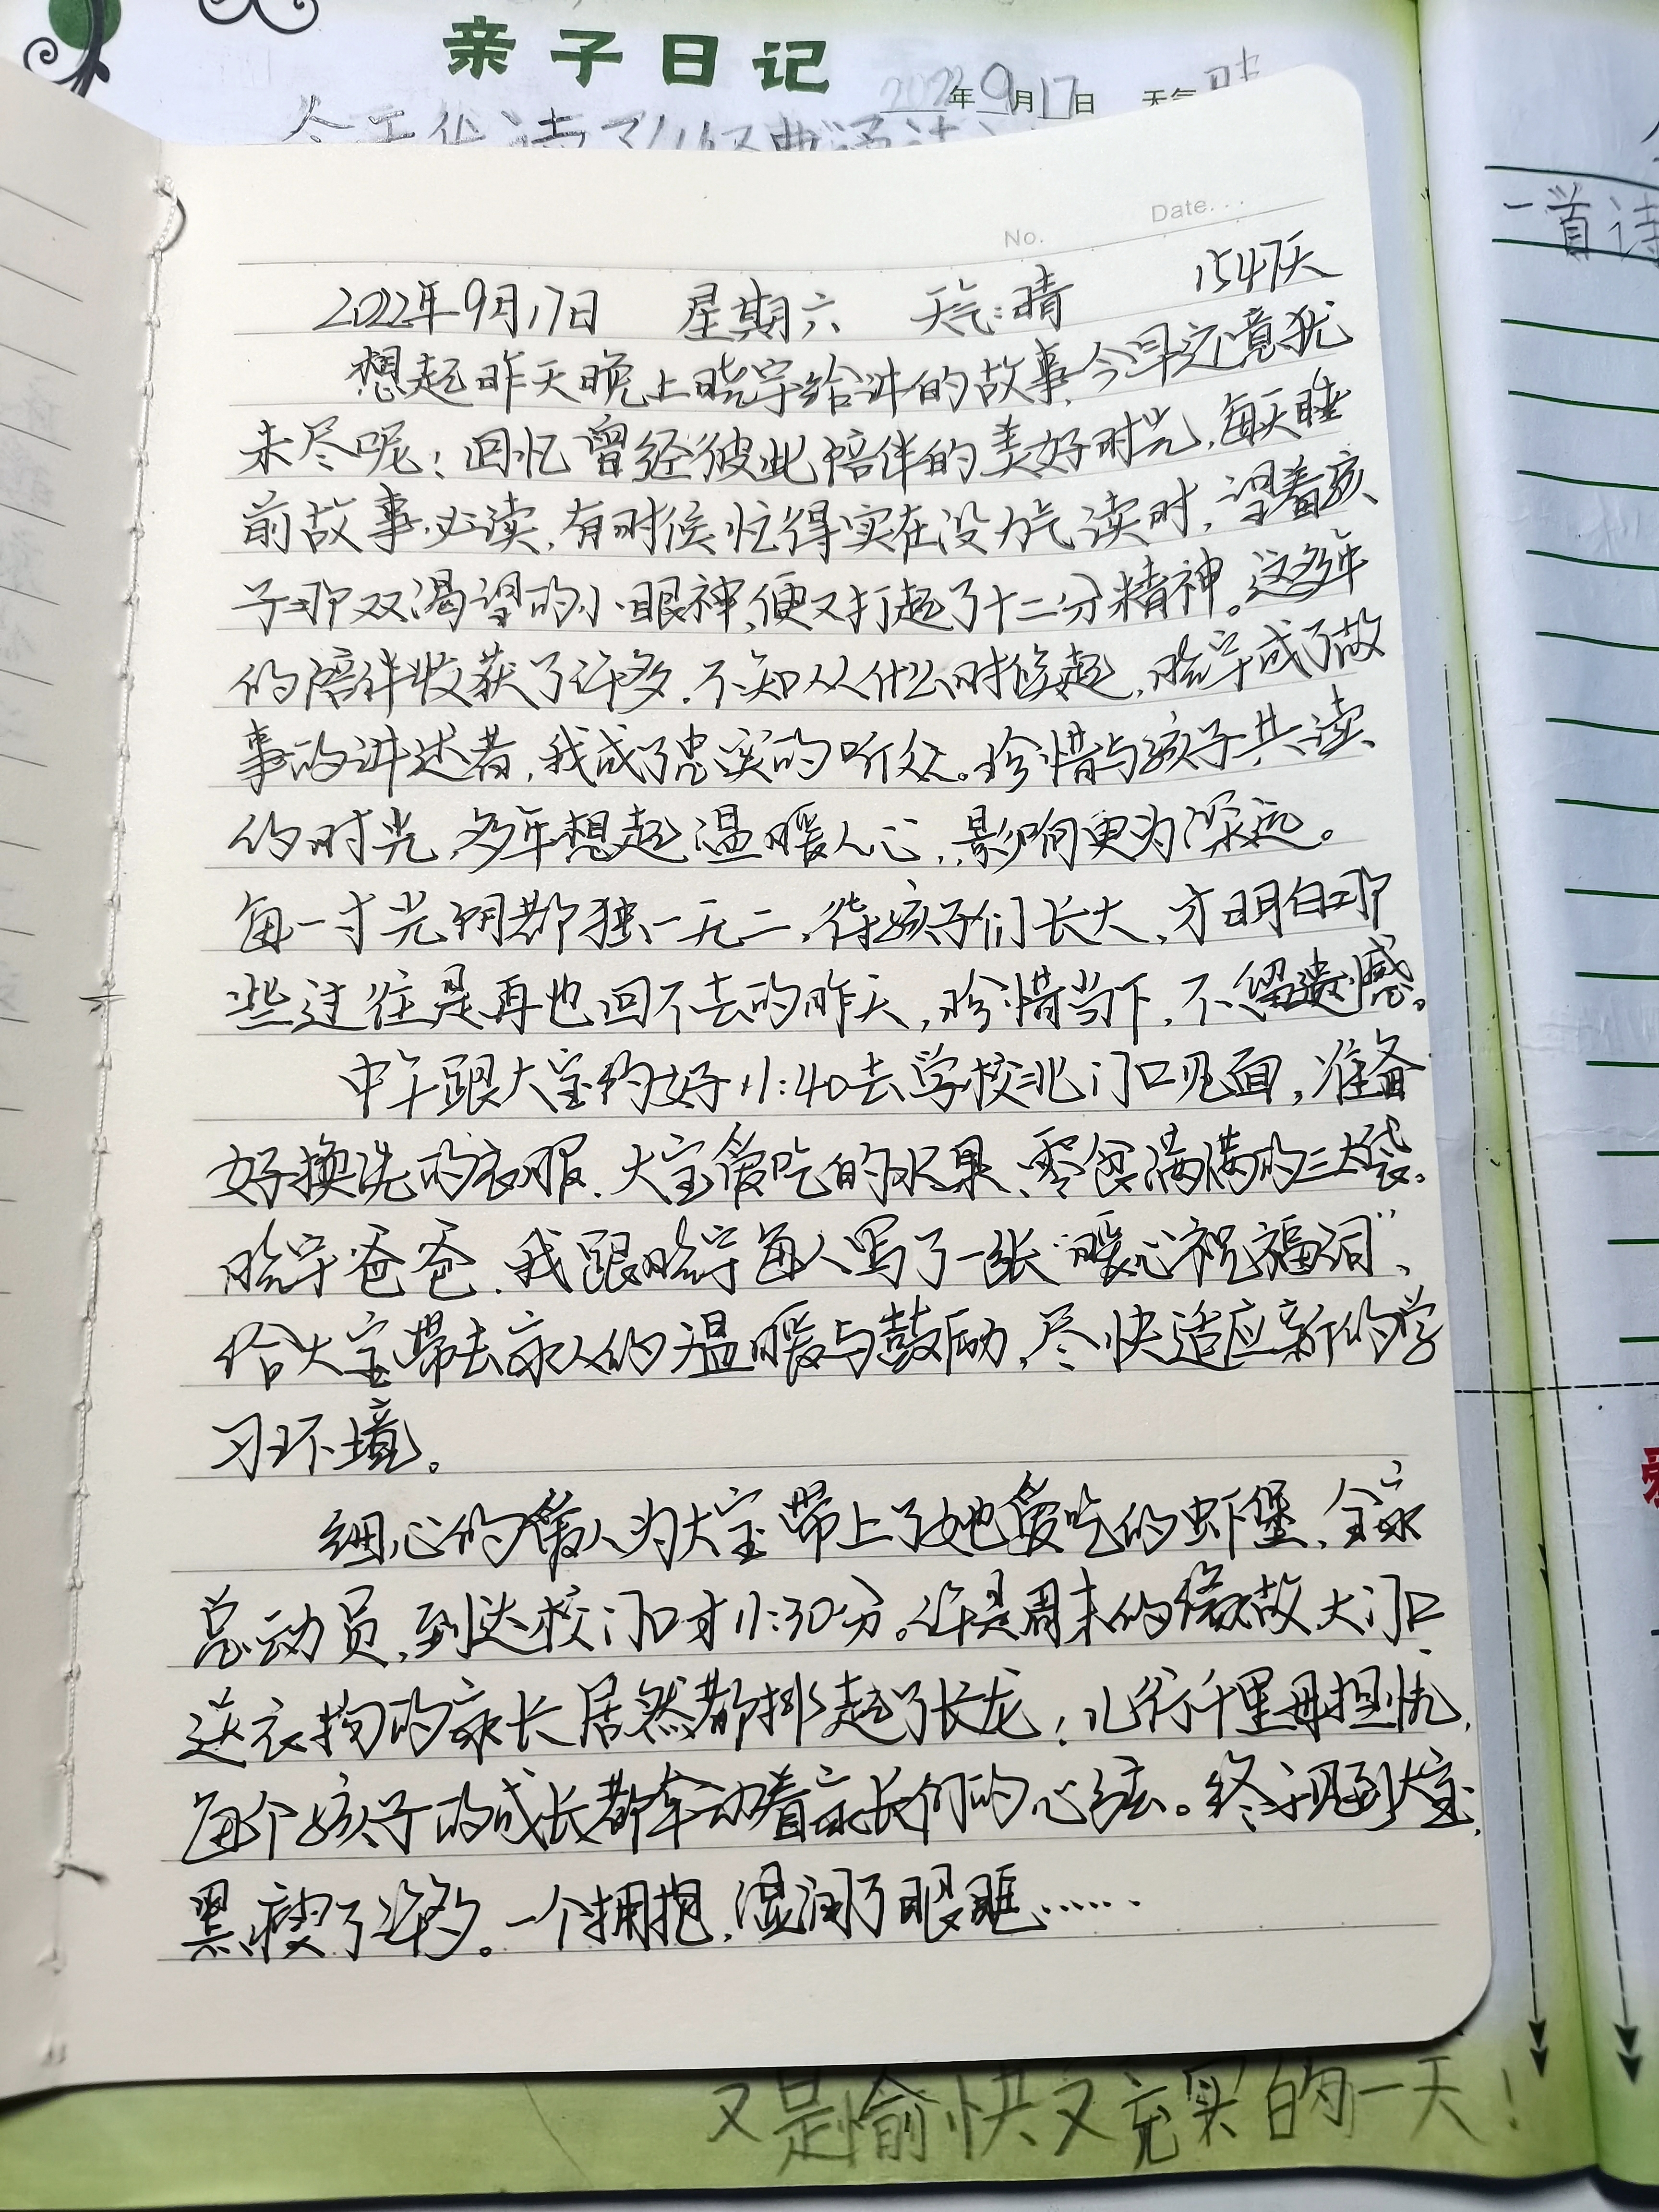 亲子日记
2022年9月17日 天气 晴
一首诗
No. Date...
2022年9月17日 星期六 天气:晴 1547天
想起昨天晚上晓宇给讲的故事,今早还意犹
未尽呢!回忆曾经彼此陪伴的美好时光,每天睡
前故事必读,有时候忙得实在没力气读时,望着孩
子那双渴望的小眼神,便又打起了十二分精神。这多年
的陪伴收获了许多,不知从什么时候起,晓宇成了故
事的讲述者,我成了忠实的听众。珍惜与孩子共读
的时光,多年想起温暖人心,影响更为深远。
每一寸光阴都独一无二,待孩子们长大,才明白那
些过往是再也回不去的昨天,珍惜当下,不留遗憾。
中午跟大宝约好11:40去学校北门口见面,准备
好换洗的衣服、大宝爱吃的水果、零食满满的三大袋。
晓宇爸爸、我跟晓宇每人写了一张“暖心祝福词”,
给大宝带去家人的温暖与鼓励,尽快适应新的学
习环境。
细心的爱人为大宝带上了她爱吃的虾堡,全家
总动员,到达校门口才11:30分。许是周末的缘故,大门口
送衣物的家长居然都排起了长龙!儿行千里母担忧,
每个孩子的成长都牵动着家长们的心弦。终于见到大宝,
黑瘦了许多。一个拥抱,湿润了眼眶……
又是愉快又充实的一天!